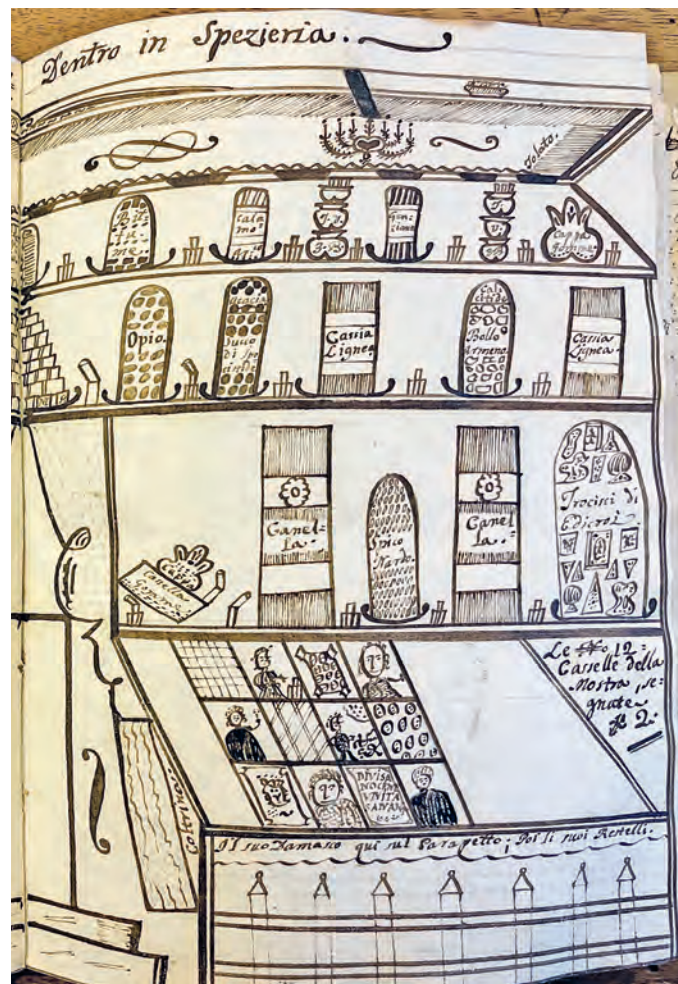 Dentro in Spezieria.
Solaro.
Cala
mo
Gen
ziana
Gomma.
Opio.
Acacia
Succo
di Spo
Cassia
Lignea
Bollo
Armeno.
Cassia
Lignea.
Canel=
la.
Spico
Nardo.
Canel
la.
Trocisci di
Edicroi
Canella
Le No. 12=
Casselle della
Mostra, se=
gnate
DIVISA
NOCENT
VNITA
Coltrina.
Il suo Damasco qui sul Parapetto; Poi li suoi Restelli.